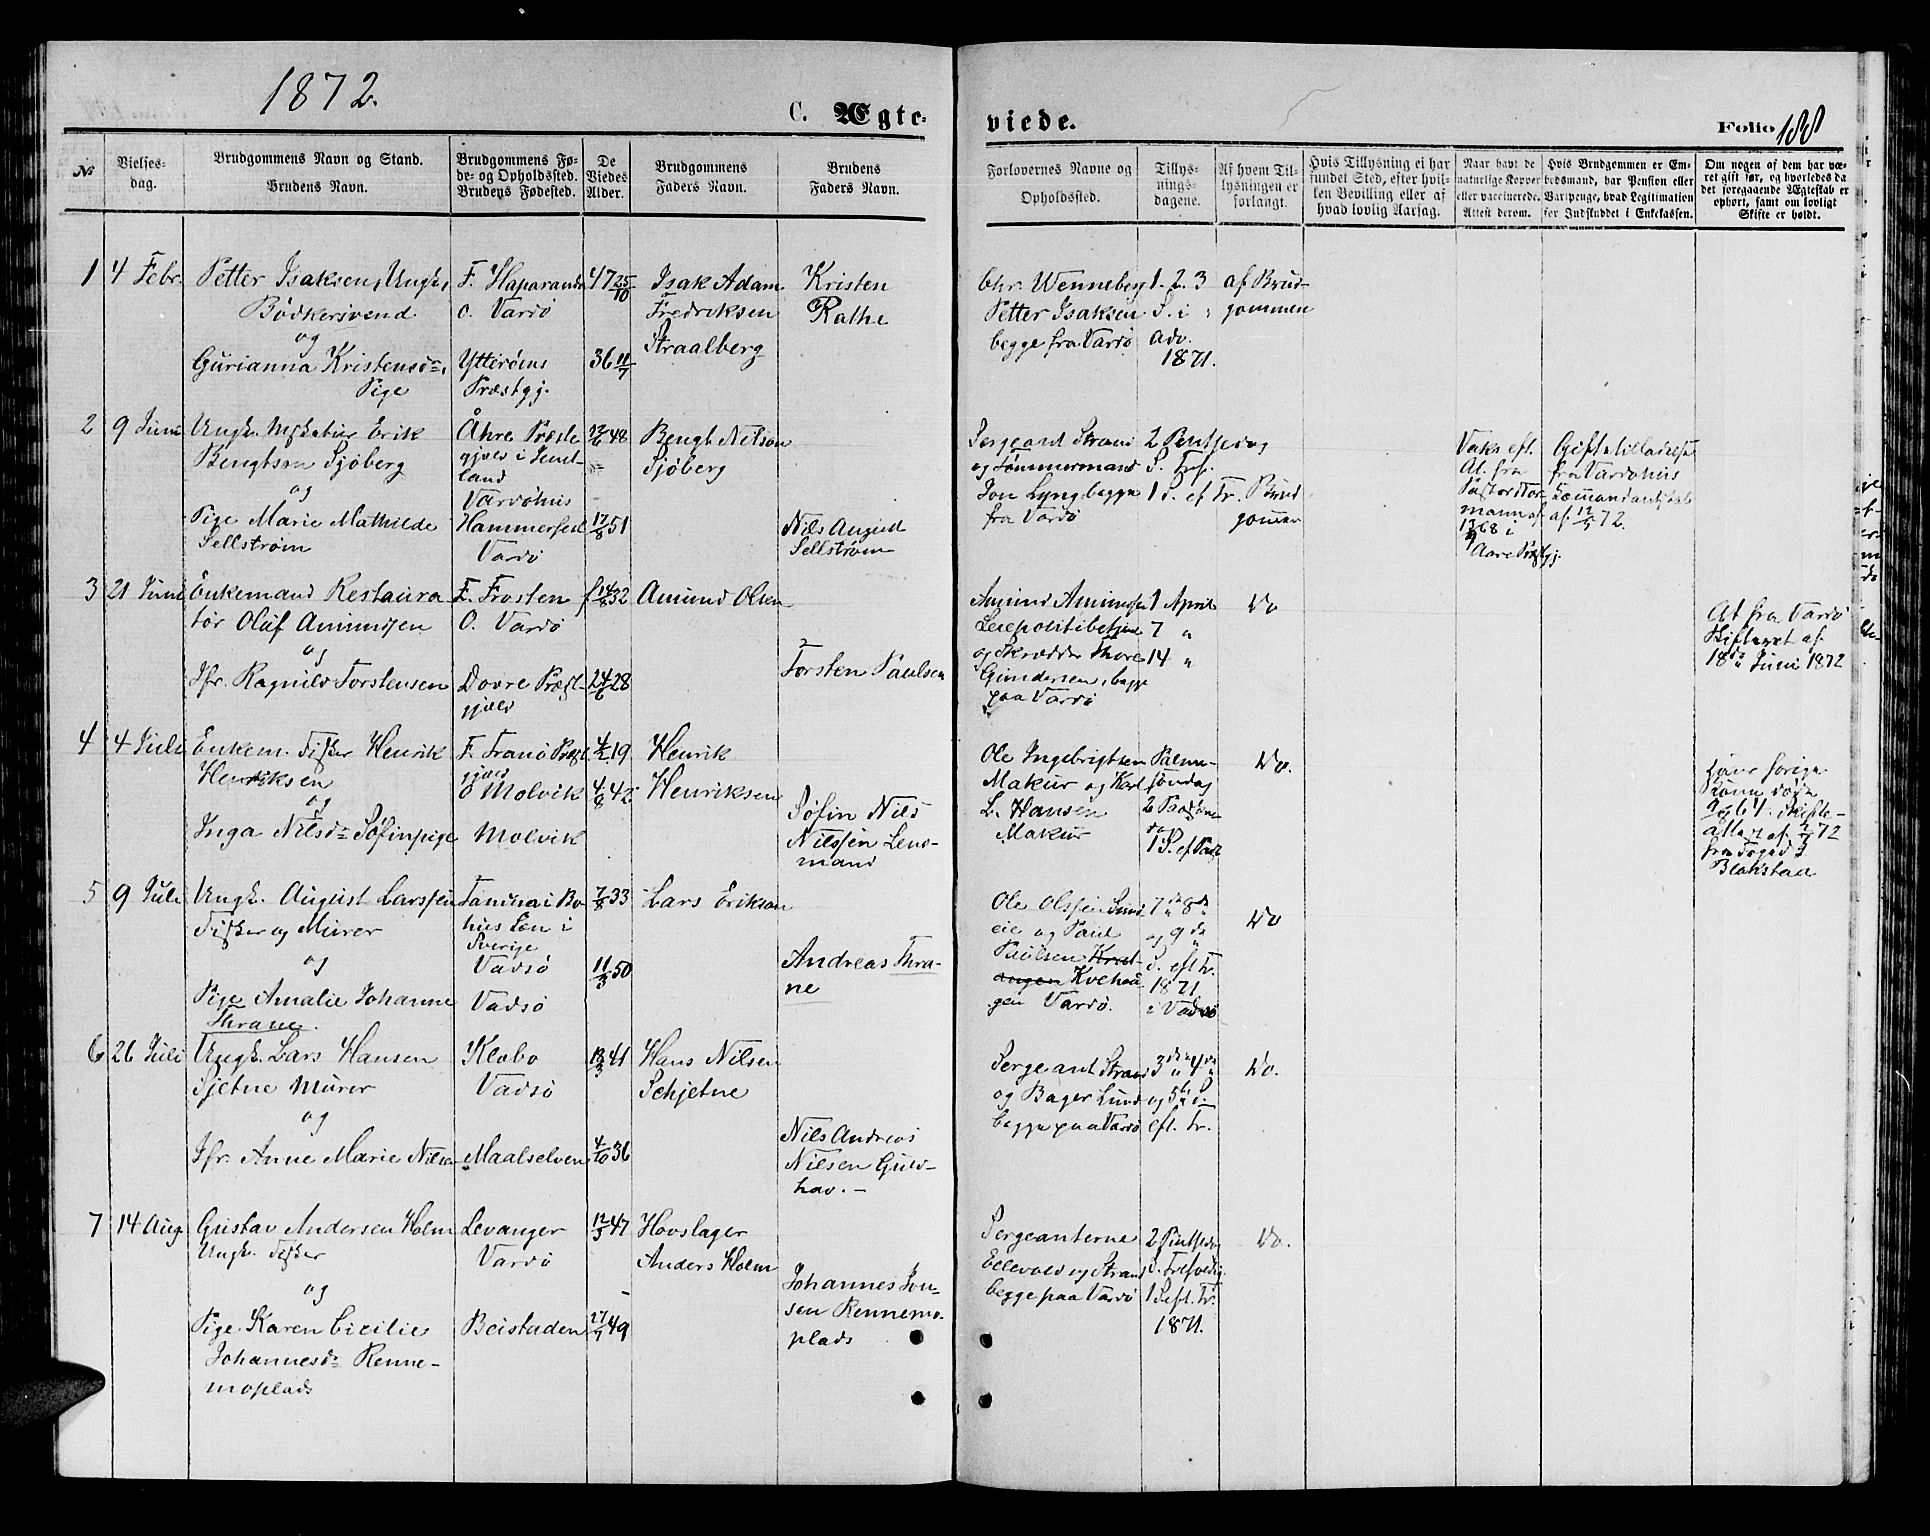 1872.
C. Ægte-
viede.
Folio 188
№
Vielses-
dag.
Brudgommens Navn og Stand.
Brudens Navn.
Brudgommens Fø-
de- og Opholdssted.
Brudens Fødested.
De
Viedes
Alder.
Brudgommens
Faders Navn.
Brudens
Faders Navn.
Forlovernes Navne og
Opholdssted.
Tillys-
nings-
dagene.
Af hvem Til-
lysningen er
forlangt.
Hvis Tillysning ei har
fundet Sted, efter hvil-
ken Bevilling eller af
hvad lovlig Aarsag.
Naar havt de
naturlige Kopper
eller vaccinerede.
Attest derom.
Hvis Brudgommen er Em-
bedsmand, har Pension eller
Vartpenge, hvad Legitimation
for Indskuddet i Enkekassen.
Om nogen af dem har væ-
ret gift før, og hvorledes da
det foregaaende Ægteskab er
ophørt, samt om lovligt
Skifte er holdt.
1
4 Febr.
Petter Isaksen, Ungk,
Bødkersvend
og
Gurianna Kristensd:,
Pige
F. Haparanda
O. Vardö
Ytterøens
Præstgj.
47 25/10
36 11/7
Isak Adam
Fredriksen
Straalberg
Kristen
Rathe
Chr. Wenneberg
Petter Isaksen
begge fra Vardö
1. 2. 3
S. i
adv.
1871.
af Brud-
gommen
2
9 Juni
Ungk. Erik
Bengtson Sjöberg
og
Pige Marie Mathilde
Sellström
Åhre Præste
gjeld i Jemt-
land
Vardöhus
Hammerfest
Vardö
12/6 48
17/8 51
Bengt Nilson
Sjöberg
Nils August
Sellström
Sergeant Strand
og Tømmermand
Jon Lyng begge
fra Vardö
2 Pintsedag
S. Tref.
1 S. ef Tr.
Brud
gommen
Vakn eft.
At. fra
Pastor
mann af
68 i
Aare Præstgj.
Giftetilladelse
fra Vardöhus
Commandantskab
af 12/5 72.
3
21 Juni
Enkemand Restaura
tör Oluf Amundsen
og
Jfr. Ragnild Torstensen
F. Frosten
O. Vardö
Dovre Præst-
gjeld
f 14/8 32
24/6 28
Amund Olsen
Torsten Paulsen
Amund Amundsen
Leiepolitibetjent
og Skrædder Thore
Gundersen, begge
paa Vardö
1 April
7 "
14 "
Do
At fra Vardö
Skifteret af
18de Juni 1872
4
4 Juli
Enkem. Fisker Henrik
Henriksen
og
Inga Nilsd: Söfinpige
F. Tranö Præst
gjeld
O Molvik
Molvik
4/2 19
4/8 42
Henrik
Henriksen
Söfin Nils
Nilssen Lens-
mand
Ole Ingebrigtsen
Makur og Karl
L. Hansen
Makur
Palme-
söndag
2 Paaske
da
1 S. ef Paask
Do.
hans forige
Kone döde
9/6 64. Skifte-
attest af 72
fra Foged
Blakstad
5
9 Juli
Ungk. August Larssen
Fisker og Murer
og
Pige Amalie Johanne
Thrane.
Tanum i Bo
hus Len i
Sverige
Vadsö
Vadsö
7/8 33
11/3 50
Lars Erikson
Andreas Thra-
ne
Ole Olssen Sund
eie og Paul
Paulsen
Kvehau-
gen Vardö.
7de 8de
og 9de
S. eft Tr.
1871
i Vadsö
Do
6
26 Juli
Ungk. Lars Hansen
Sjetne Murer
og
Jfr. Anne Marie Nilsen
Klæbo
Vadsö
Maalselven
13/3 41
4/10 36
Hans Nilsen
Schjetne
Nils Andreas
Nilsen Guld-
hav. –
Sergeant Strand
og Bager Lund
begge paa Vardö
3de 4de
og 5te S.
eft. Tr.
Do.
7
14 Aug
Gustav Andersen Holm
Ungk. Fisker
og
Pige Karen Cicilie
Johannesd: Renne-
moplads
Levanger
Vardö
Beistaden
12/3 47
27/7 49
Hovslager
Anders Holm
Johannes Jon-
sen Rennemo-
plads
Sergeanterne
Ellevold og Strand
begge paa Vardö
2 Pintsedag
S. Trefoldig.
1 S eft. Tr.
1871.
Do.